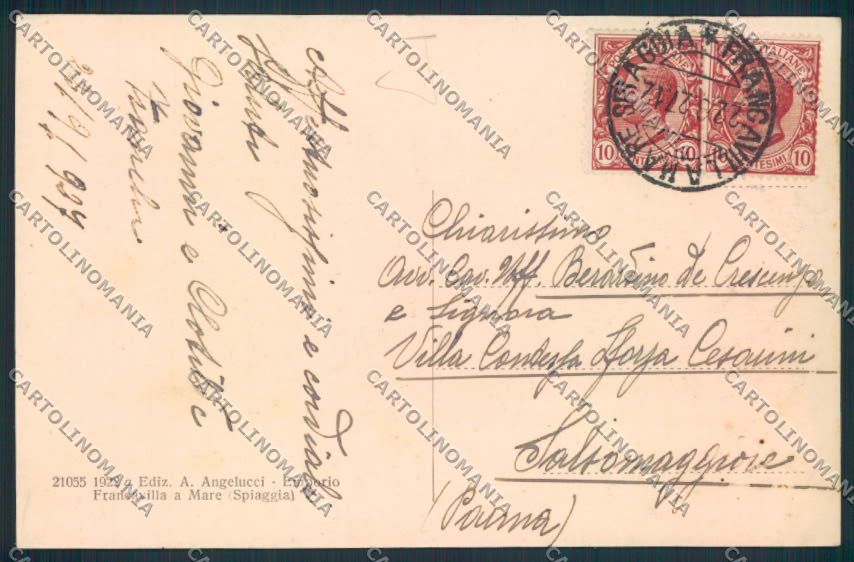 Affettuosissimi e cordiali
saluti
Giovanni e Clotilde
21/9/927
POSTE ITALIANE
10 CENTESIMI 10
FRANCAVILLA MARE SPIAGGIA
Chiarissimo
Avv. Cav. Uff. Berardino de Crescenzo
e Signora
Villa Contessa Sforza Cesarini
Salsomaggiore
(Parma)
21055 1922 Ediz. A. Angelucci - Emporio
Francavilla a Mare (Spiaggia)
CARTOLINOMANIA